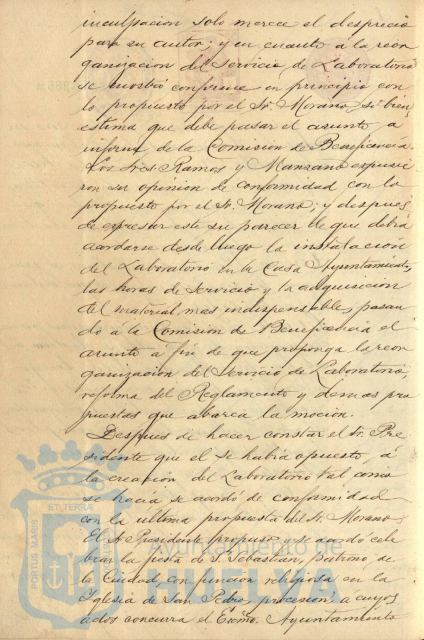 inculpacion solo merece el desprecio
para su autor; y en cuanto á la reor
ganizacion del Servicio de Laboratorio
se mostró conforme en principio con
lo propuesto por el Sr. Morano, si bien
estima que debe pasar el asunto á
informe de la Comision de Beneficencia.
Los Sres. Ramos y Manzano expusie
ron su opinion de conformidad con lo
propuesto por el Sr. Morano; y despues
de expresar este su parecer de que debia
acordarse desde luego la instalacion
del Laboratorio en la Casa Ayuntamiento,
las horas de servicio y la adquisicion
del material mas indispensable, pasan
do á la Comision de Beneficencia el
asunto á fin de que proponga la reor
ganizacion del Servicio de Laboratorio,
reforma del Reglamento y demas pro
puestas que abarca la mocion.
Despues de hacer constar el Sr. Pre
sidente que el se habia opuesto á
la creacion del Laboratorio tal como
se hacia se acordó de conformidad
con la ultima propuesta del Sr. Morano.
El Sr. Presidente propuso y se acordó cele
brar la fiesta de S. Sebastian, Patrono de
la Ciudad, con funcion religiosa en la
Iglesia de San Pedro, procesion, a cuyos
actos concurra el Excmo. Ayuntamiento
PORTUS MARIS ET TERRÆ
Ayuntamiento de